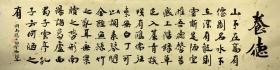 養德
山不在高有
仙則名水不
在深有龍則
靈斯是陋室
惟吾德馨苔
痕上階綠草
色入簾青談
笑有鴻儒往
來無白丁可
以調素琴閱
金經無絲竹
之亂耳無案
牘之勞形南
陽諸葛廬西
蜀子雲亭孔
子云何陋之
有